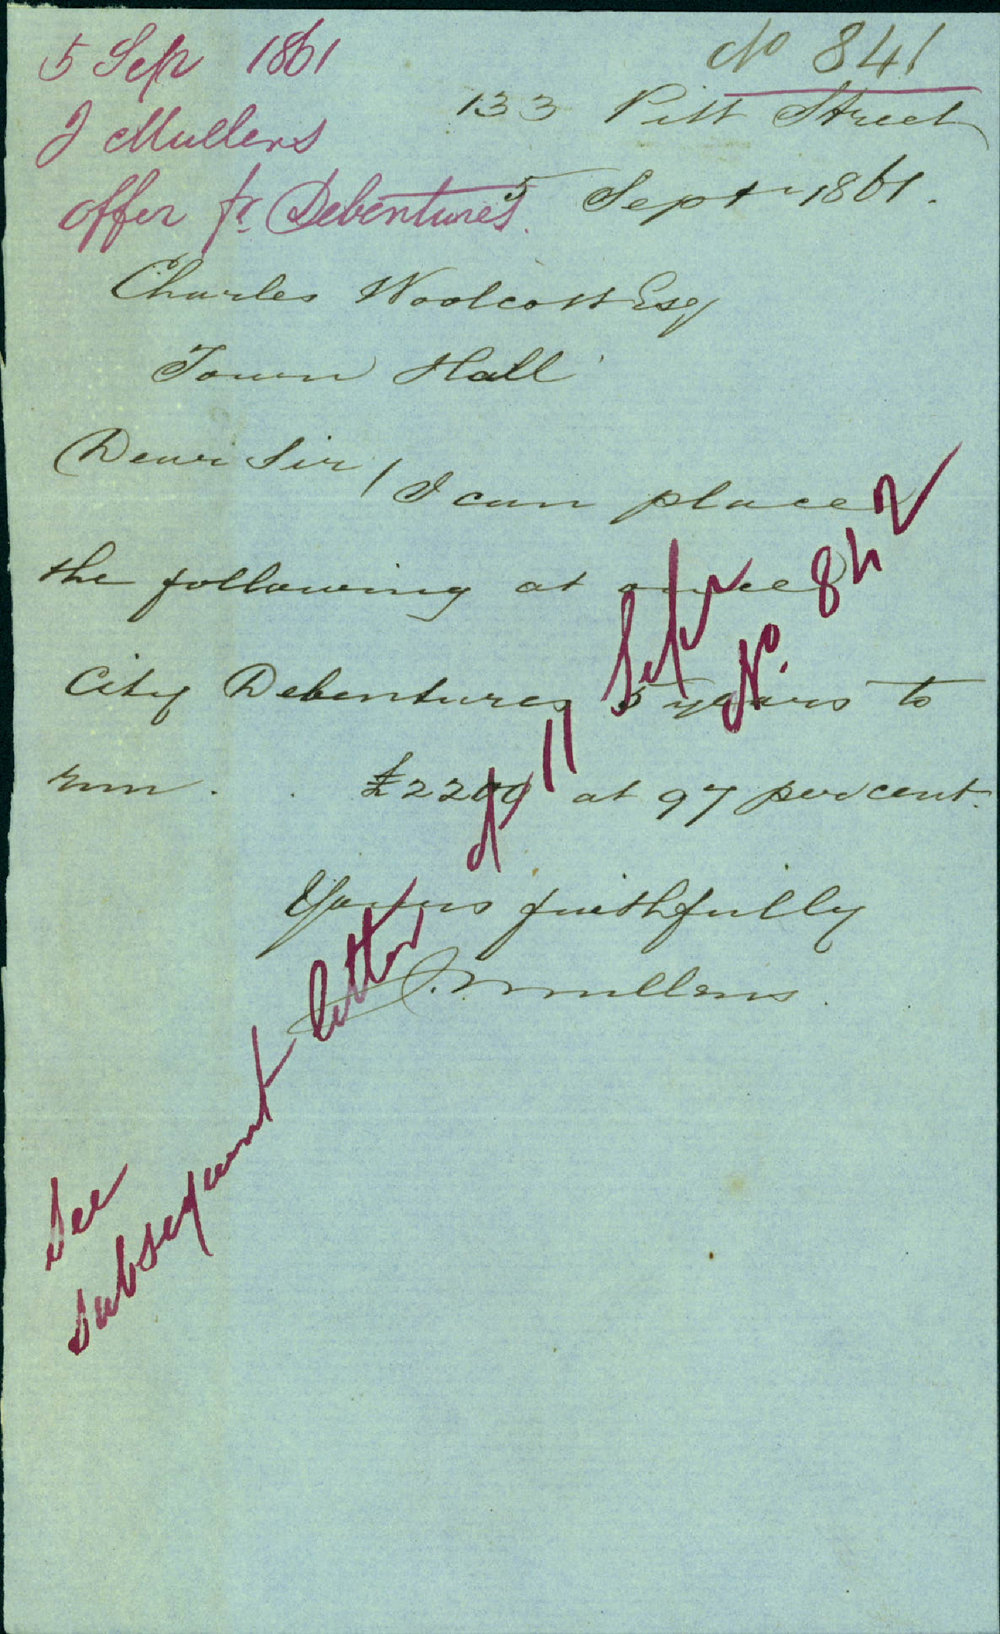 5 Sep 1861
J Mullens
offer fr Debentures.
No 841
133 Pitt Street
5 Sept 1861.
Charles Woolcott Esq
Town Hall
Dear Sir / I can place
the following at once
City Debentures 5 years to
run. £2200 at 97 per cent.
Yours faithfully
J. Mullens.
See
subsequent letter d/ 11 Sepr
No. 842